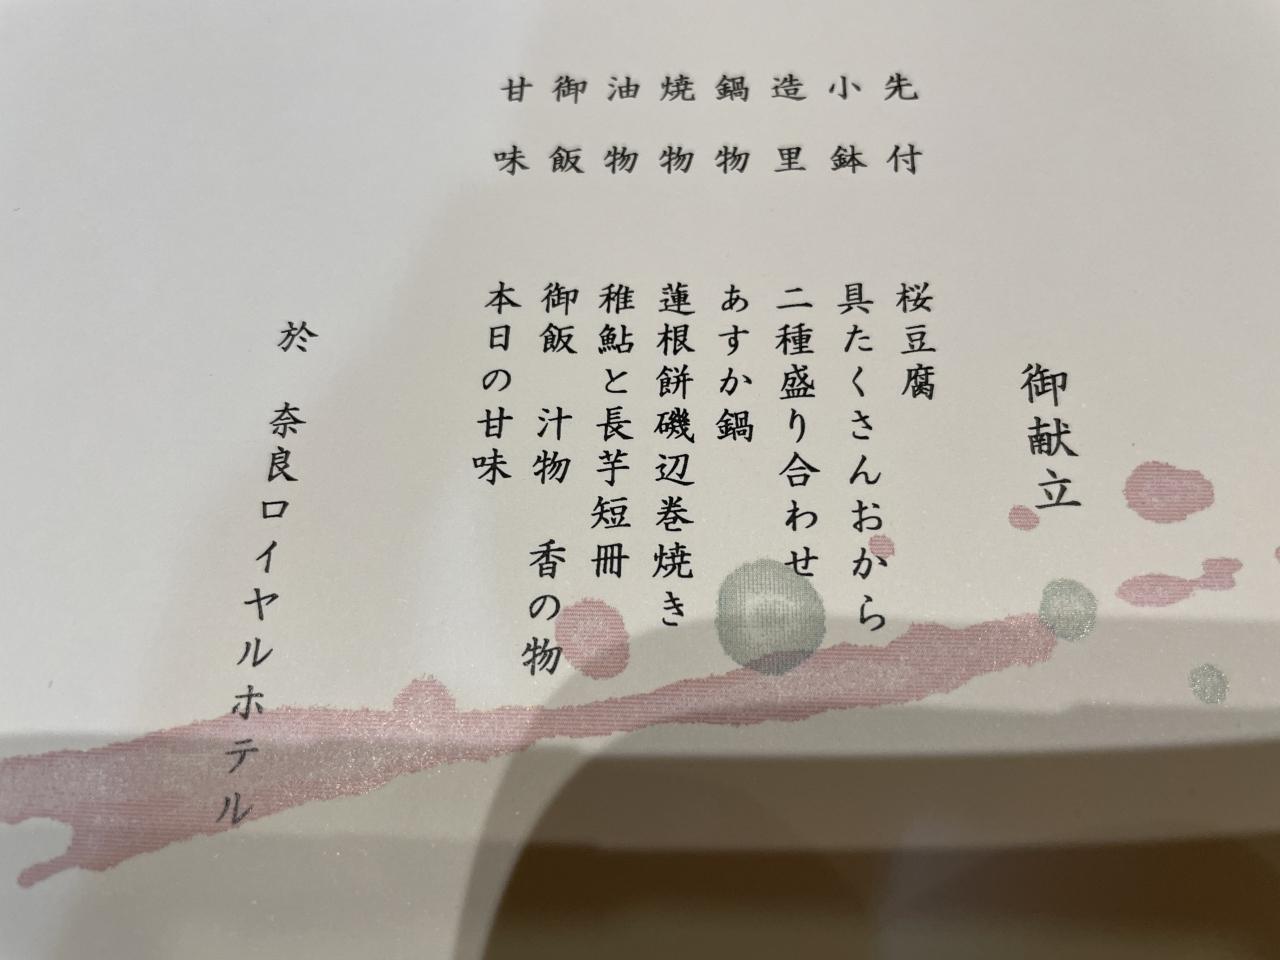 御献立
先付 桜豆腐
小鉢 具たくさんおから
造里 二種盛り合わせ
鍋物 あすか鍋
焼物 蓮根餅磯辺巻焼き
油物 稚鮎と長芋短冊
御飯 御飯 汁物 香の物
甘味 本日の甘味
於 奈良ロイヤルホテル